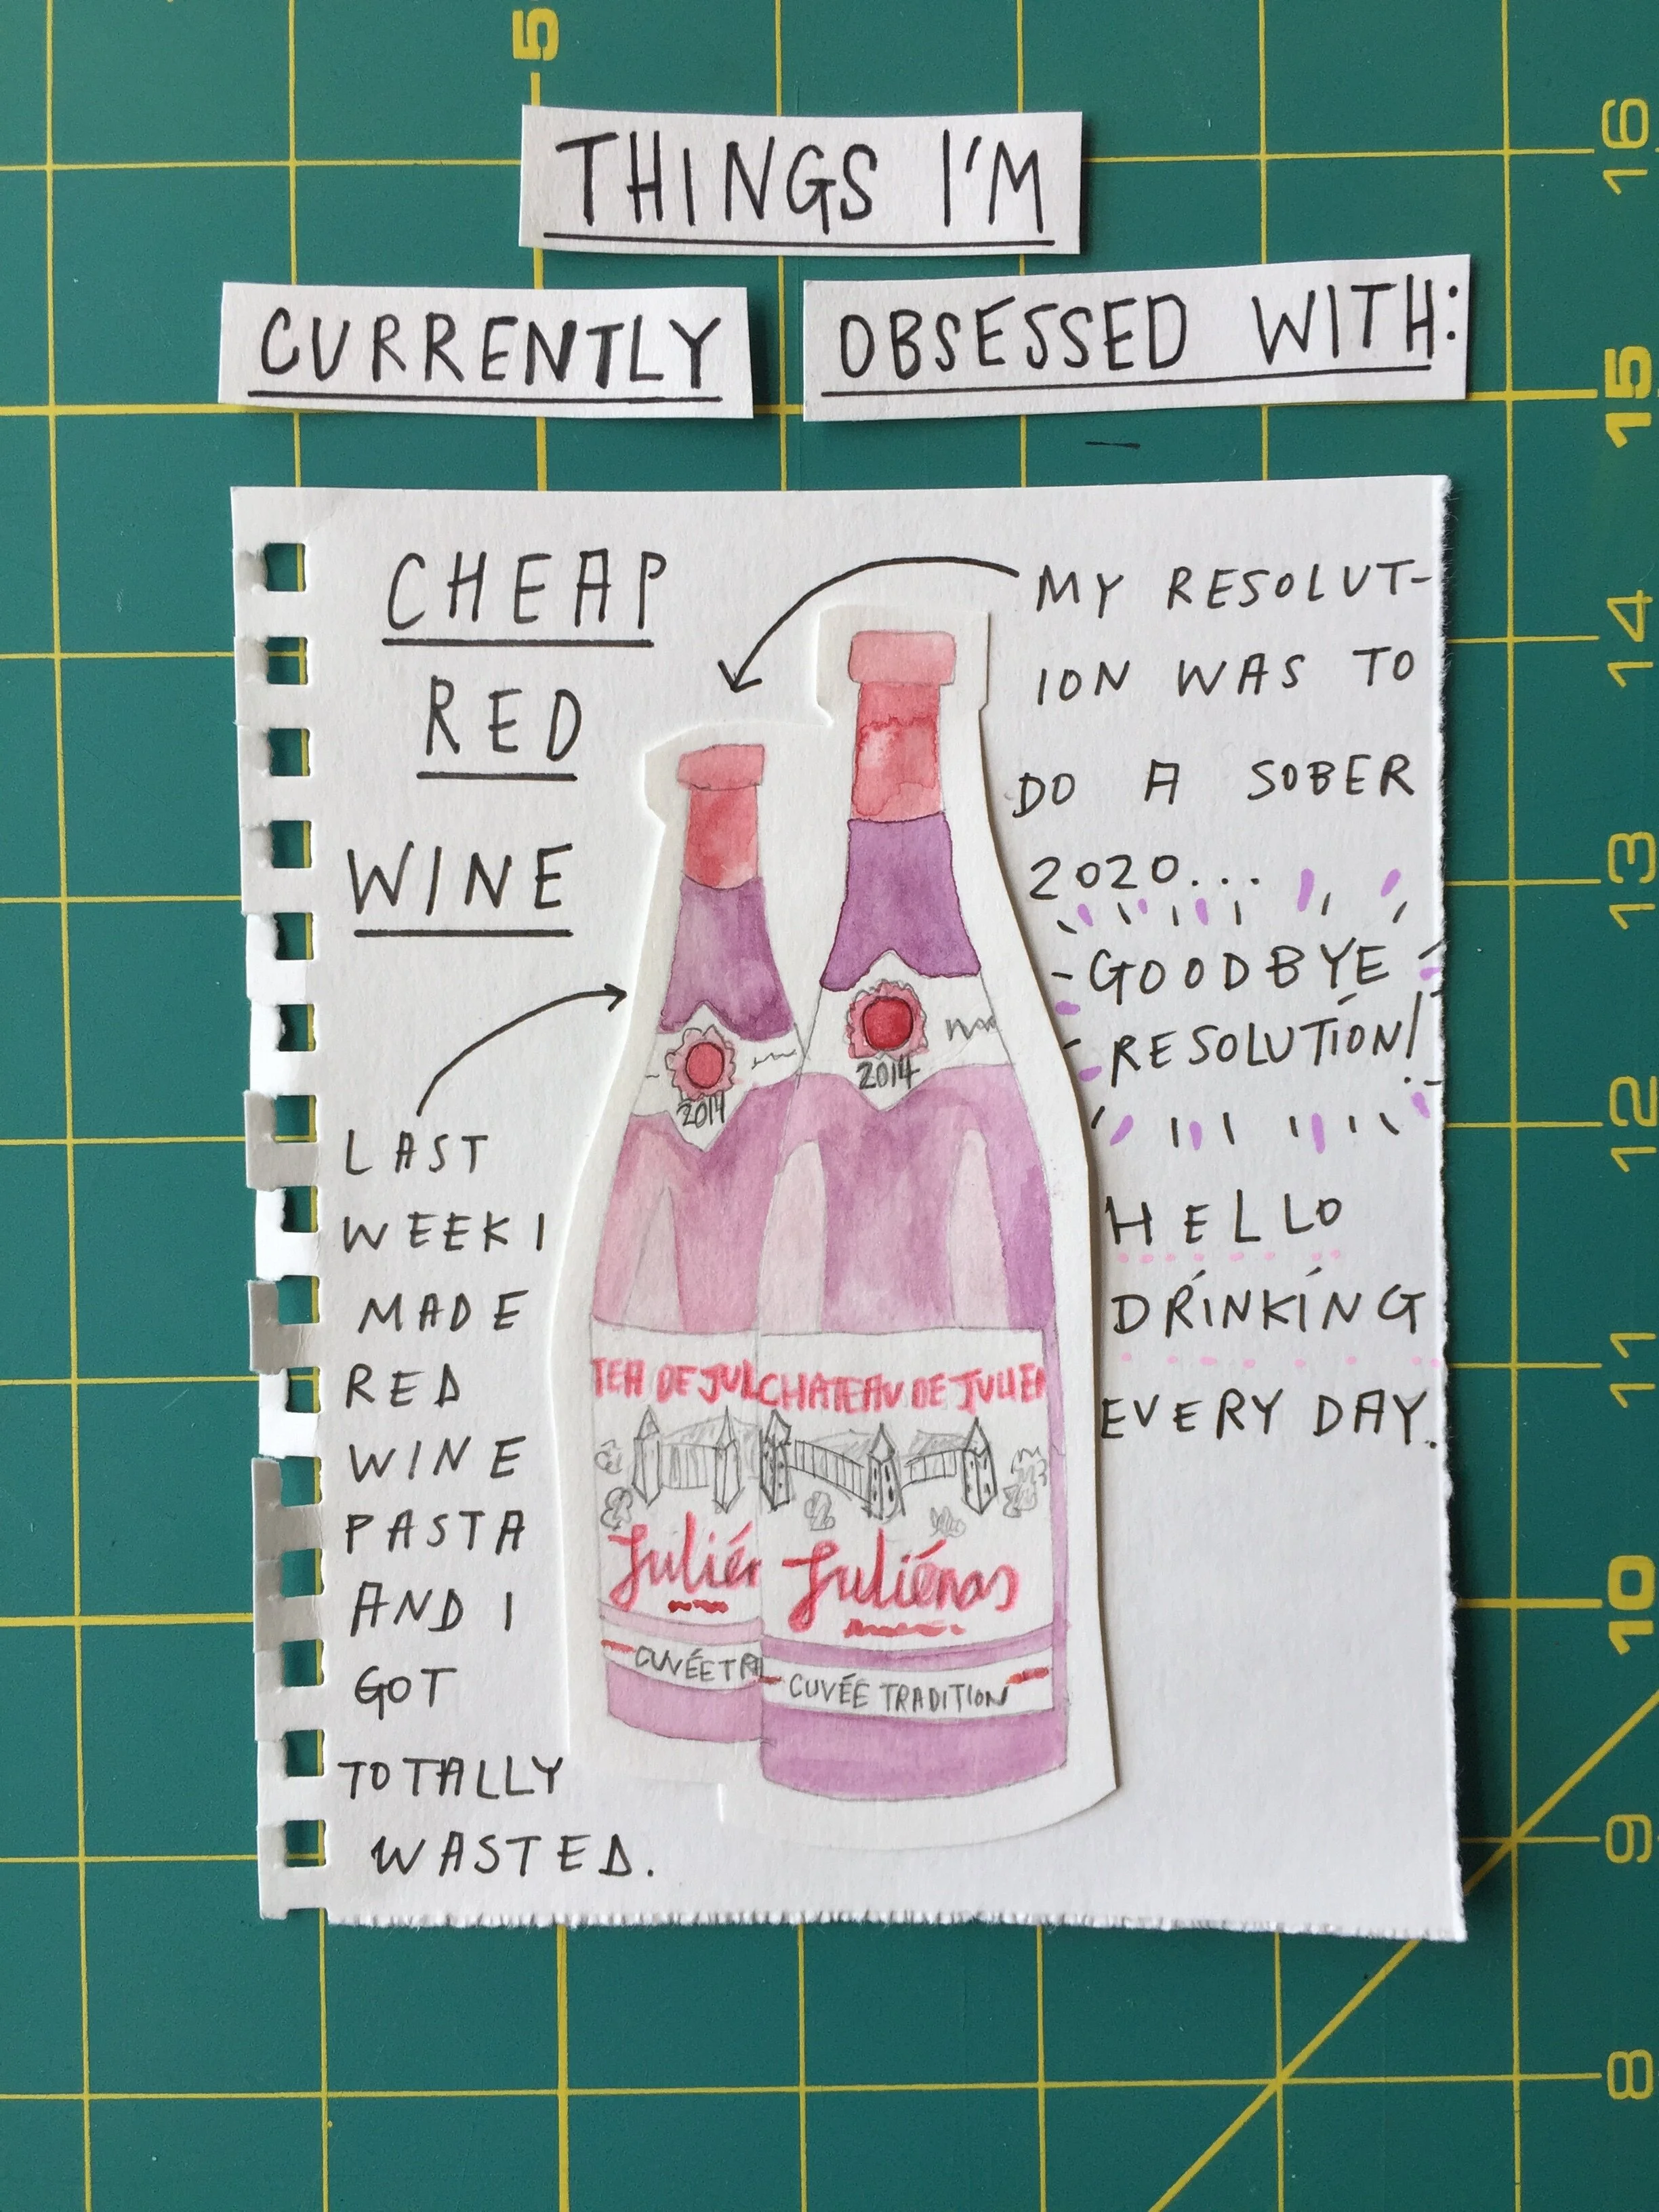 5
THINGS I'M
CURRENTLY OBSESSED WITH:
CHEAP
RED
WINE
MY RESOLUT-
ION WAS TO
DO A SOBER
2020...
GOODBYE
RESOLUTION!
HELLO
DRINKING
EVERY DAY.
LAST
WEEK I
MADE
RED
WINE
PASTA
AND I
GOT
TOTALLY
WASTED.
2014
2014
TEA DE JUL
CHATEAU DE JULIEN
Juliér
Juliénas
CUVÉE TRA
CUVÉE TRADITION
16
15
14
13
12
11
10
9
8